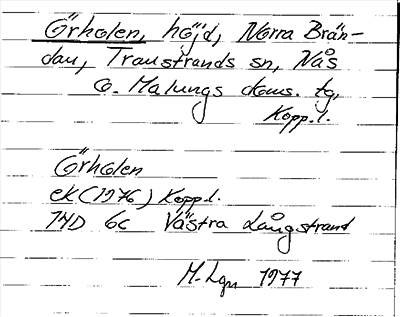 Örholen, höjd, Norra Brän-
dan, Transtrands sn, Nås
o. Malungs doms. tg,
Kopp.l.
Örholen
ek (1976) Kopp.l.
14D 6c Västra Långstrand
M. Lgn 1977